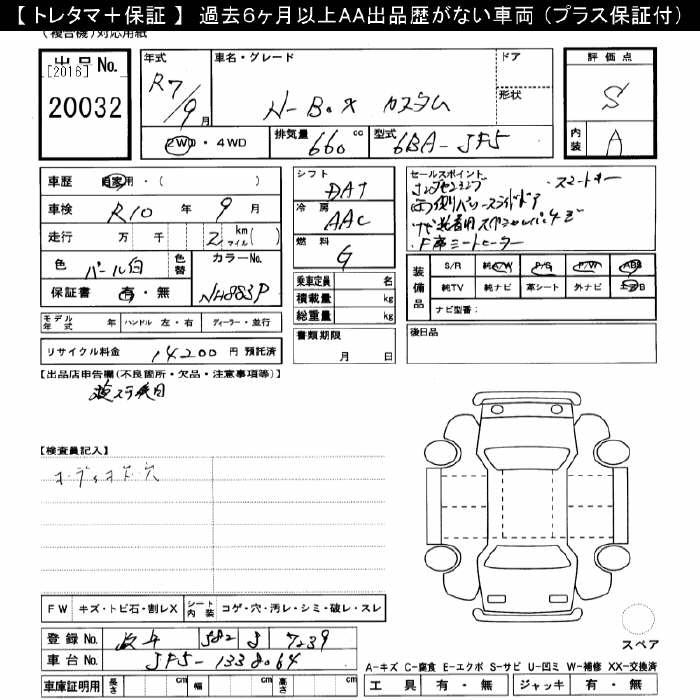 【 トレタマ＋保証 】 過去６ヶ月以上ＡＡ出品歴がない車両（プラス保証付）
(複合機)対応用紙
出 品 No.
[2016]
20032
年式
R7/9月
車名・グレード
N-Box カスタム
ドア
形状
評 価 点
S
内装
A
2WD・4WD
排気量 660 cc
型式 6BA-JF5
車歴 自家用・( )
車検 R10 年 9 月
走行 万 千 2 km マイル( )
色 パール白 色替 カラーNo.
NH883P
保証書 有・無
シフト
DAT
冷房
AAC
燃料
G
乗車定員 名
積載量 kg
総重量 kg
書類期限
月 日
セールスポイント
・スマートキー
両側パワースライドドア
・F席シートヒーター
装備品
S/R 純A/W P/S P/W ABS
純TV 純ナビ 革シート 外ナビ エアB
ナビ型番：
後日品
モデル年式 年 ハンドル 左・右 ディーラー・並行
リサイクル料金 14200 円 預託済
【出品店申告欄(不良箇所・欠品・注意事項等)】
【検査員記入】
オーディオレス穴
FW キズ・トビ石・割レX シート内装 コゲ・穴・汚レ・シミ・破レ・スレ
登録 No. 582 7239
車台 No. JF5-1338064
車庫証明用 長さ cm 幅 cm 高さ cm
スペア
A-キズ C-腐食 E-エクボ S-サビ U-凹ミ W-補修 XX-交換済
工 具 有 ・ 無 ジャッキ 有 ・ 無